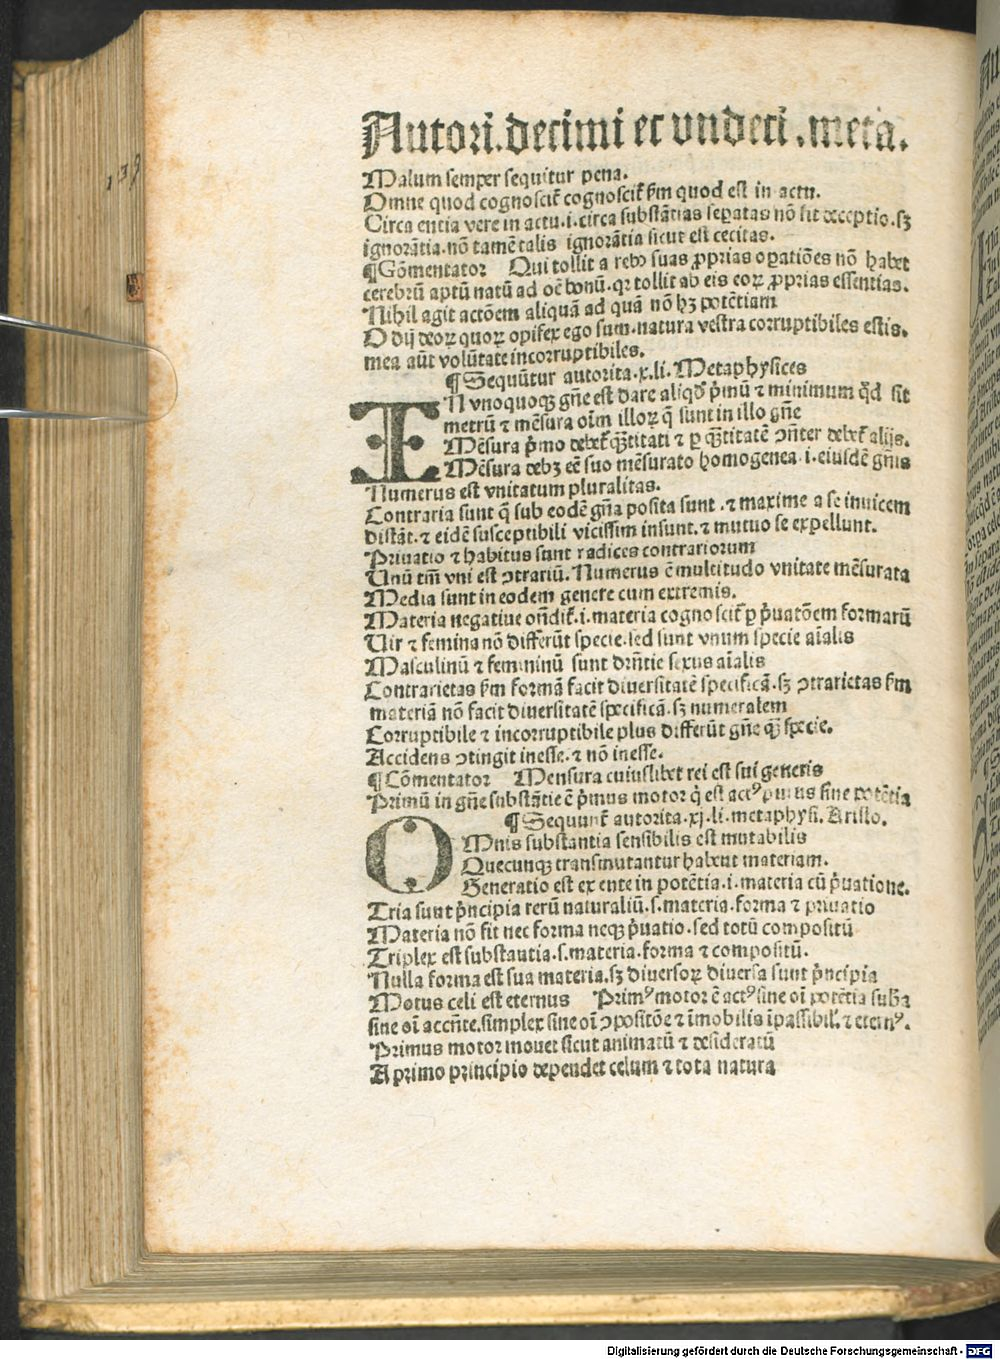 Autori.decimi et vndeci.meta.
Malum semper sequitur pena.
Omne quod cognoscit᷑ cognoscit᷑ ẜm quod est in actu.
Circa entia vere in actu.i.circa substātias seꝑatas nō sit deceptio.sꝫ
ignorātia.nō tamē talis ignorātia sicut est cecitas.
¶Cōmentator Qui tollit a rebꝰ suas ꝓprias oꝑatiōes nō habet
cerebrū aptū natū ad oē bonū.qꝛ tollit ab eis eoꝝ ꝓprias essentias.
Nihil agit actōem aliquā ad quā nō hꝫ potētiam
O dij deoꝝ quoꝝ opifex ego sum.natura vestra corruptibiles estis.
mea aūt volūtate incorruptibiles.
¶Sequūtur autorita.x.li.Metaphysices
IN vnoquoqꝫ gn̄e est dare aliqd̓ p̄mū ⁊ minimum qd̓ sit
metrū ⁊ mēsura oīm illoꝝ q̄ sunt in illo gn̄e
Mēsura p̄mo debet᷑ q̄ntitati ⁊ ꝑ q̄ntitatē ꝯn̄ter debet᷑ alijs.
Mēsura debꝫ eē suo mēsurato homogenea.i.eiusdē gn̄is
Numerus est vnitatum pluralitas.
Contraria sunt q̄ sub eodē gn̄e posita sunt.⁊ maxime a se inuicem
distāt.⁊ eidē susceptibili vicissim insunt.⁊ mutuo se expellunt.
Priuatio ⁊ habitus sunt radices contrariorum
Unū tm̄ vni est ꝯtrariū.Numerus ē multitudo vnitate mēsurata
Media sunt in eodem genere cum extremis.
Materia negatiue on̄dit᷑.i.materia cognoscit᷑ ꝑ p̄uatōem formarū
Uir ⁊ femina nō differūt specie.sed sunt vnum specie aīalis
Masculinū ⁊ femininū sunt drn̄tie sexus aīalis
Contrarietas ẜm formā facit diuersitatē specificā.sꝫ ꝯtrarietas ẜm
materiā nō facit diuersitatē specificā.sꝫ numeralem
Corruptibile ⁊ incorruptibile plus differūt gn̄e qꝫ̄ specie.
Accidens ꝯtingit inesse.⁊ nō inesse.
¶Cōmentator Mensura cuiuslibet rei est sui generis
Primū in gn̄e substātie ē p̄mus motor q̇ est actꝰ purus sine potētia
¶Sequunt᷑ autorita.xj.li.metaphysi.Aristo.
OMnis substantia sensibilis est mutabilis
Quecunqꝫ transmutantur habent materiam.
Generatio est ex ente in potētia.i.materia cū p̄uatione.
Tria sunt p̄ncipia rerū naturaliū.s.materia.forma ⁊ priuatio
Materia nō fit nec forma neqꝫ p̄uatio.sed totū compositū
Triplex est substautia.s.materia.forma ⁊ compositū.
Nulla forma est sua materia.sꝫ diuersoꝝ diuersa sunt p̄ncipia
Motus celi est eternus Primꝰ motor ē actꝰ sine oī potētia sub̄a
sine oī accn̄te.simplex sine oī ꝯpositōe ⁊ īmobilis īpassibil'.⁊ eternꝰ.
Primus motor mouet sicut animatū ⁊ desideratū
A primo principio depeudet celum ⁊ tota natura
139
Digitalisierung gefördert durch die Deutsche Forschungsgemeinschaft - DFG